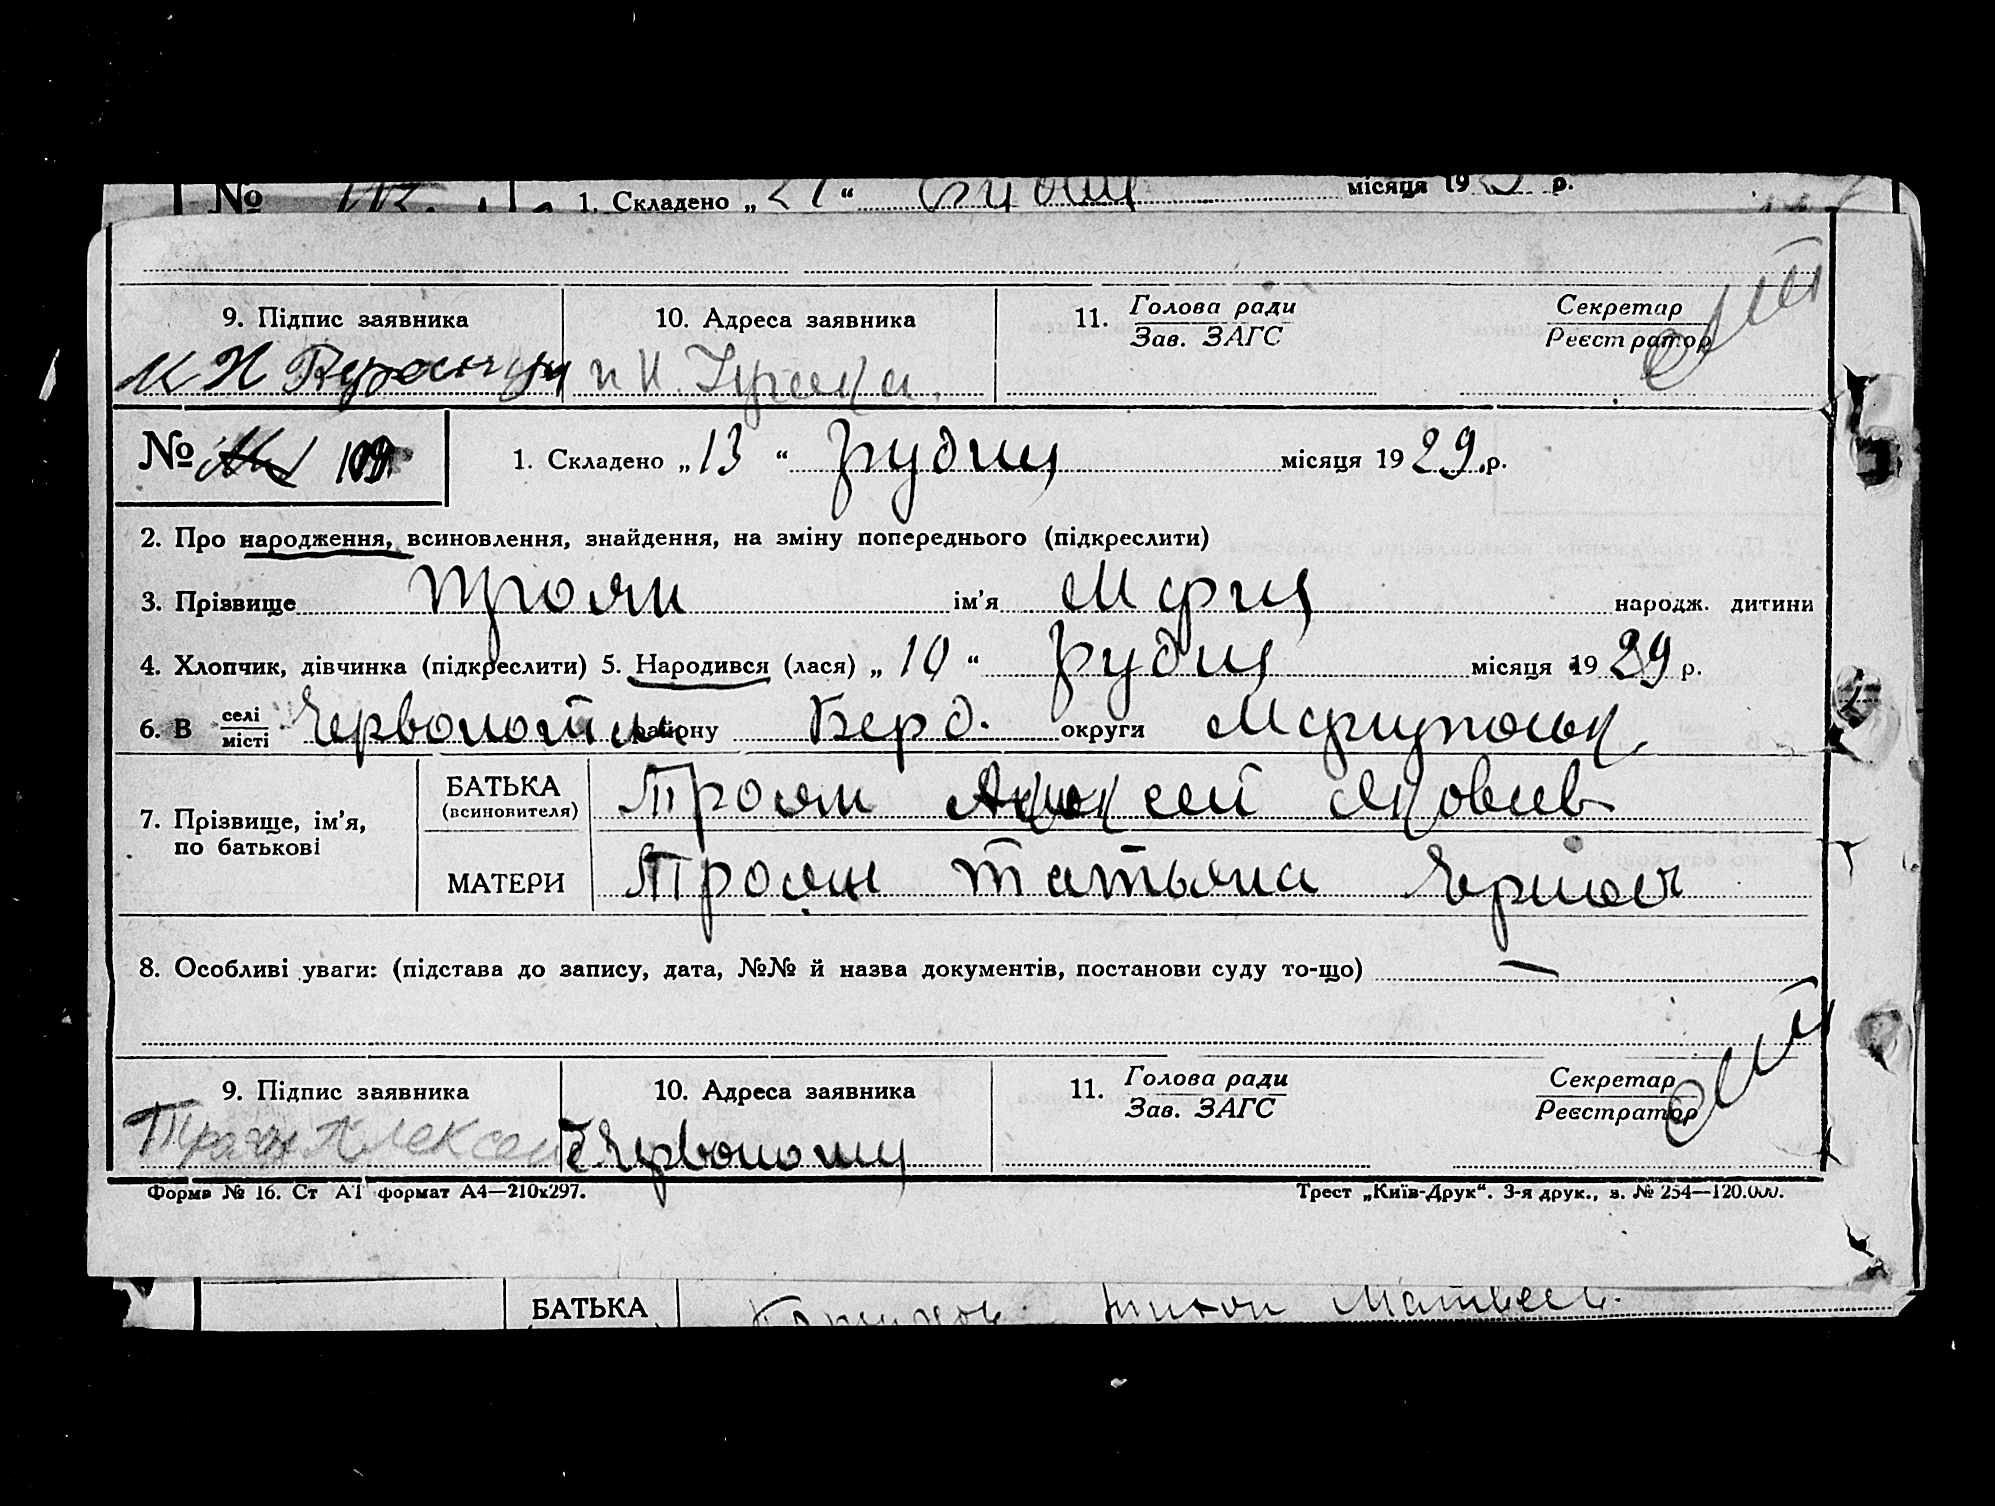 № 1. Складено „ 21 “ грудня місяця 19 р.
9. Підпис заявника 10. Адреса заявника 11. Голова ради Секретар
Зав. ЗАГС Реєстратор
№ 109 1. Складено „ 13 “ грудня місяця 19 29 р.
2. Про народження, всиновлення, знайдення, на зміну попереднього (підкреслити)
3. Прізвище Троян ім'я Мария народж. дитини
4. Хлопчик, дівчинка (підкреслити) 5. Народився (лася) „ 10 “ грудня місяця 19 29 р.
6. В селі району Берд. округи
місті
БАТЬКА Троян Алексей Яковлев
(всиновителя)
7. Прізвище, ім'я,
по батькові
МАТЕРИ Троян Татьяна
8. Особливі уваги: (підстава до запису, дата, №№ й назва документів, постанови суду то-що) —
9. Підпис заявника 10. Адреса заявника 11. Голова ради Секретар
Зав. ЗАГС Реєстратор
Троян Алексей
Форма № 16. Ст А1 формат А4—210х297. Трест „Київ-Друк“. 3-я друк., з. № 254—120.000.
БАТЬКА Матвеев.